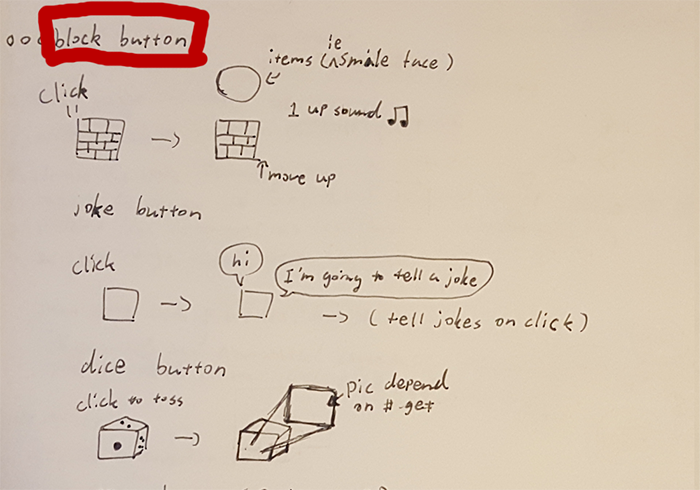 block button
ie
items ( smile face )
click
1 up sound
move up
joke button
hi
click
I'm going to tell a joke
( tell jokes on click )
dice button
click to toss
pic depend
on # get